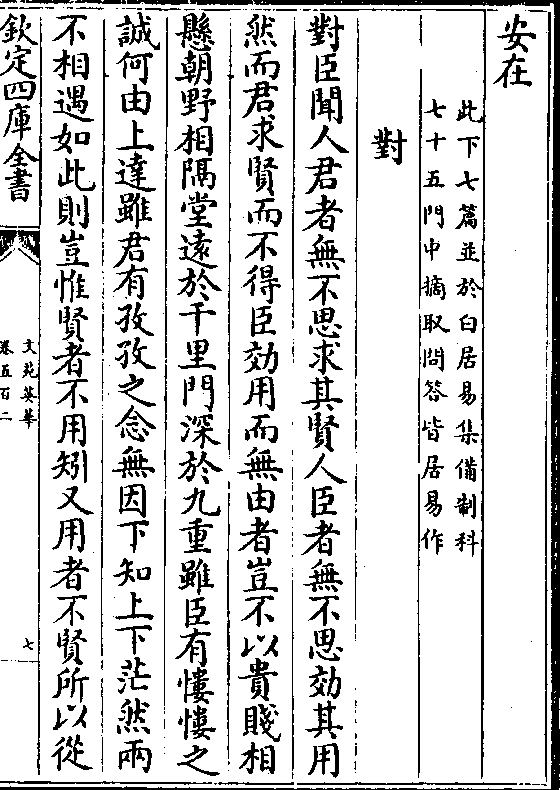 安在
此下七篇並於白居易集備制科
七十五門中摘取問答皆居易作
對
對臣聞人君者無不思求其賢人臣者無不思効其用
然而君求賢而不得臣効用而無由者豈不以貴賤相
懸朝野相隔堂逺於千里門深於九重雖臣有慺慺之
誠何由上達雖君有孜孜之念無因下知上下茫然兩
不相遇如此則豈惟賢者不用矧又用者不賢所以從
欽定四庫全書
文苑英華
卷五百二
七